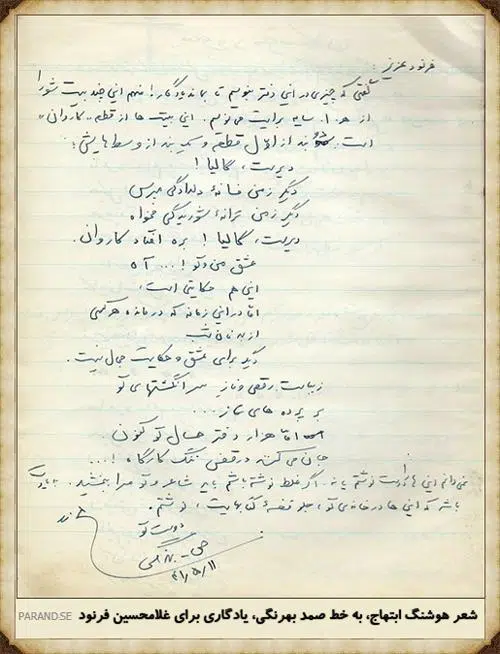 فرنود عزیز:
گفتی که چیزی در این دفتر بنویسم تا بماند یادگار! منهم این چند بیت شعر را
از ه . ا . سایه برایت می‌نویسم. این بیت ها از قطعه «کاروان»
است. دو بند از اول قطعه و یک بند از وسط هایش:
دیریست، گالیا!
دیگر ز من فسانهٔ دلدادگی مپرس
دیگر ز من ترانهٔ شوریدگی مخواه
دیرست، گالیا! بره افتاد کاروان.
عشق من و تو!... آه
این هم حکایتی است،
اما در این زمانه که درمانده هر کسی
از بهر نان شب
دیگر برای عشق و حکایت مجال نیست.
زیباست رقص و ناز سرانگشتهای تو
بر پرده های ساز...
اما هزار دختر همسال تو کنون
جان می‌کنند در قفس تنگ کارگاه!...
نمی‌دانم این ها را درست نوشتم یا نه. اگر غلط نوشته باشم باید شاعر و تو مرا ببخشید.
باشد که این ها در خانه‌ی تو، جلو قفسهٔ کتابهایت، نوشتم.
دوست تو
ص - بهرنگی
۴۱/۵/۱۱
شعر هوشنگ ابتهاج، به خط صمد بهرنگی، یادگاری برای غلامحسین فرنود
PARAND.SE